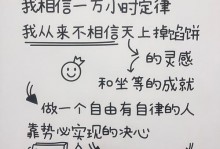 我相信一万小时定律
我从来不相信天上掉馅饼
的灵感
和坐等的成就
做一个自由有自律的人
靠势必实现的决心